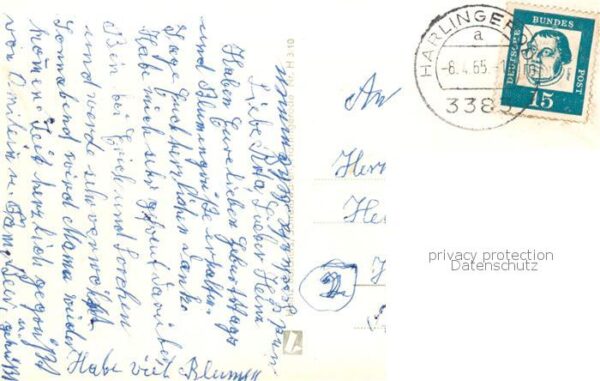 Liebe Rita Lieber Heinz
Haben Eure lieben Geburtstags
und Blumengrüße erhalten
Sage Euch herzlichen Dank.
Habe mich sehr gefreut darüber
Bin bei Erich und Lorchen
und werde sehr verwöhnt
Sonnabend wird Mama wieder
kommen. Seid herzlich gegrüßt
von
Habe viel Blumen
An
Herr
He
2
H 310
HARLINGERODE
a
-6.4.65.-1
338
DEUTSCHE BUNDES POST
Luther
15
privacy protection
Datenschutz